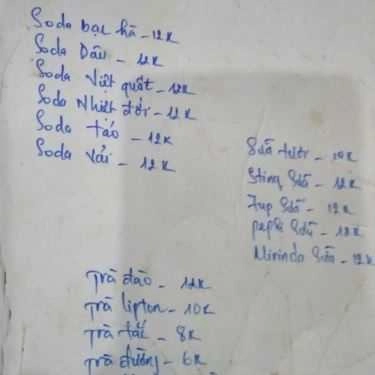 Soda bạc hà - 12K
Soda Dâu - 12K
Soda Việt quất - 12K
Soda Nhiệt đới - 12K
Soda táo - 12K
Soda vải - 12K
Sữa tươi - 10K
Sting Sữa - 12K
7up Sữa - 12K
pepsi Sữa - 12K
Mirinda Sữa - 12K
Trà đào - 12K
Trà lipton - 10K
Trà tắc - 8K
Trà đường - 6K